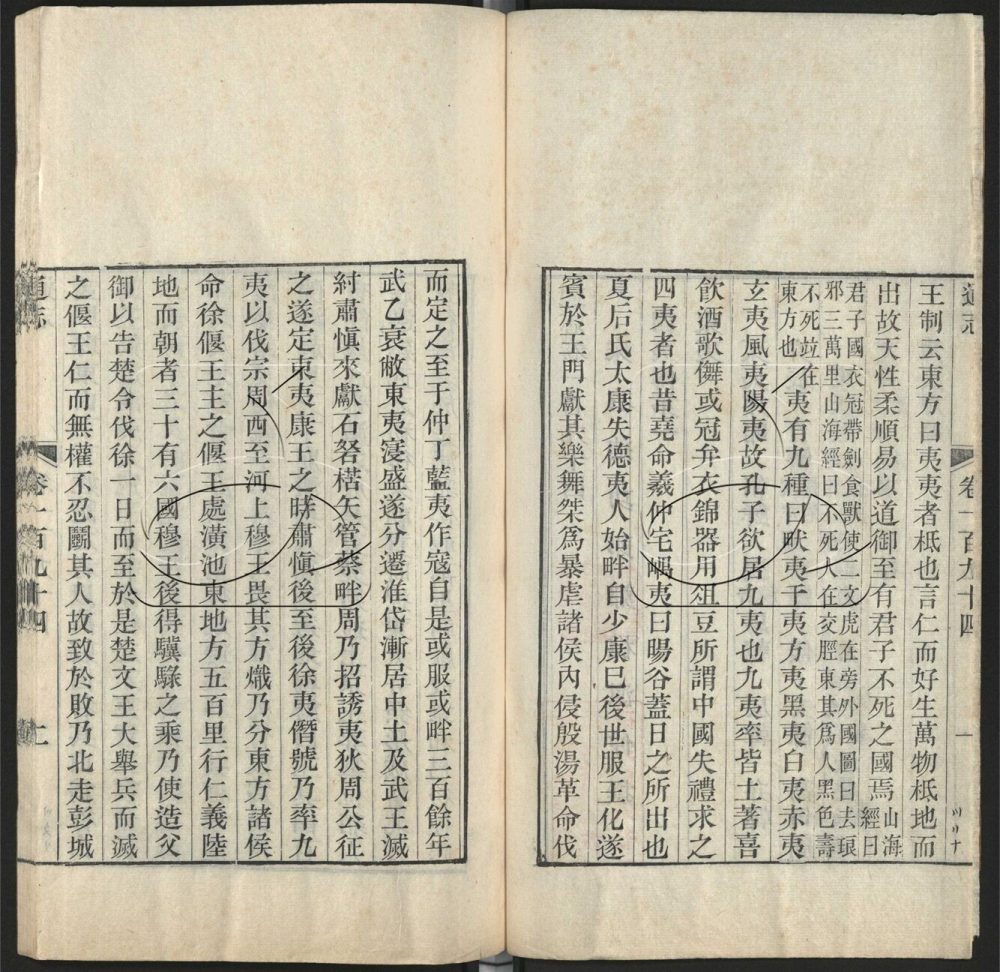 通志
卷一百九十四
一
王制云東方曰夷夷者柢也言仁而好生萬物柢地而
出故天性柔順易以道御至有君子不死之國焉山海
經曰
君子國衣冠帶劍食獸使二文虎在旁外國圖曰去琅
邪三萬里山海經曰不死人在交脛東其爲人黑色壽
不死竝在
東方也
夷有九種曰畎夷于夷方夷黑夷白夷赤夷
玄夷風夷陽夷故孔子欲居九夷也九夷率皆土著喜
飮酒歌儛或冠弁衣錦器用俎豆所謂中國失禮求之
四夷者也昔堯命羲仲宅嵎夷曰暘谷蓋日之所出也
夏后氏太康失德夷人始畔自少康巳後世服王化遂
賓於王門獻其樂舞桀爲暴虐諸侯內侵殷湯革命伐
而定之至于仲丁藍夷作寇自是或服或畔三百餘年
武乙衰敝東夷寖盛遂分遷淮岱漸居中土及武王滅
紂肅慎來獻石砮楛矢管蔡畔周乃招誘夷狄周公征
之遂定東夷康王之時肅慎後至後徐夷僭號乃率九
夷以伐宗周西至河上穆王畏其方熾乃分東方諸侯
命徐偃王主之偃王處潢池東地方五百里行仁義陸
地而朝者三十有六國穆王後得驥騄之乘乃使造父
御以告楚令伐徐一日而至於是楚文王大舉兵而滅
之偃王仁而無權不忍鬭其人故致於敗乃北走彭城
通志
卷一百九十四